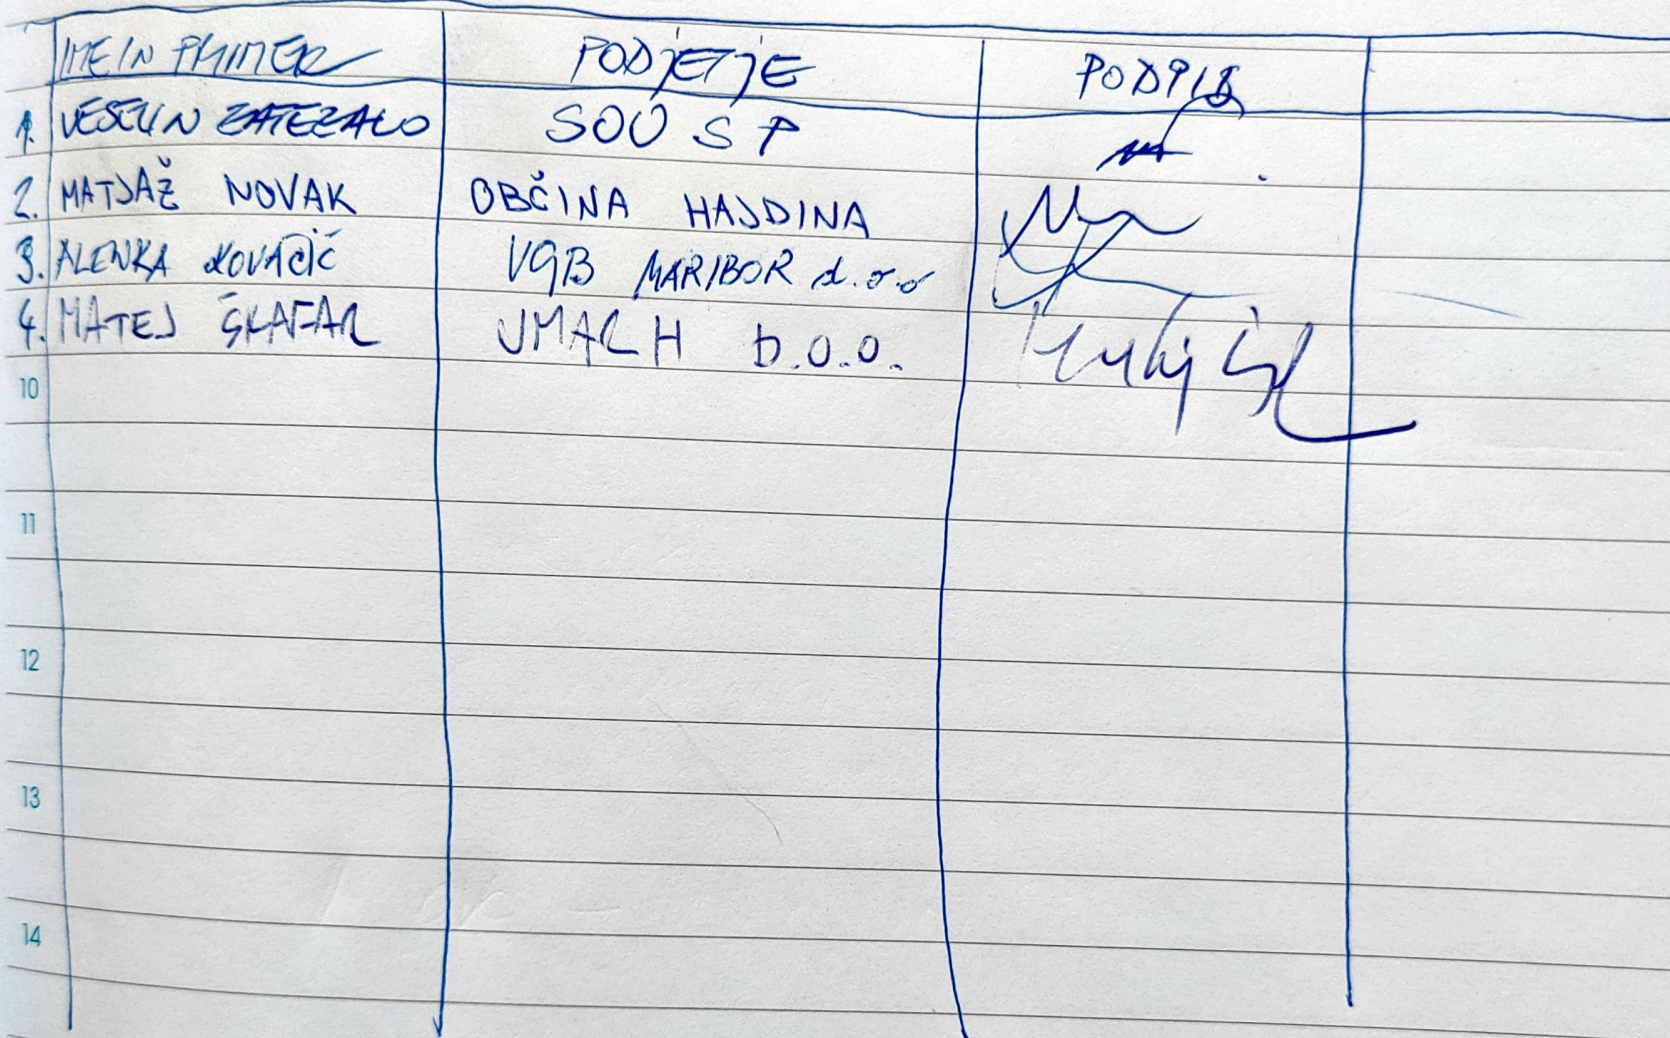 IME IN PRIIMEK PODJETJE PODPIS
1. VESELIN ZATEZALO SOU S P
2. MATJAŽ NOVAK OBČINA HAJDINA
3. ALENKA KOVAČIČ VGB MARIBOR d.o.o
4. MATEJ ŠKAFAR UMARH D.O.O.
10
11
12
13
14